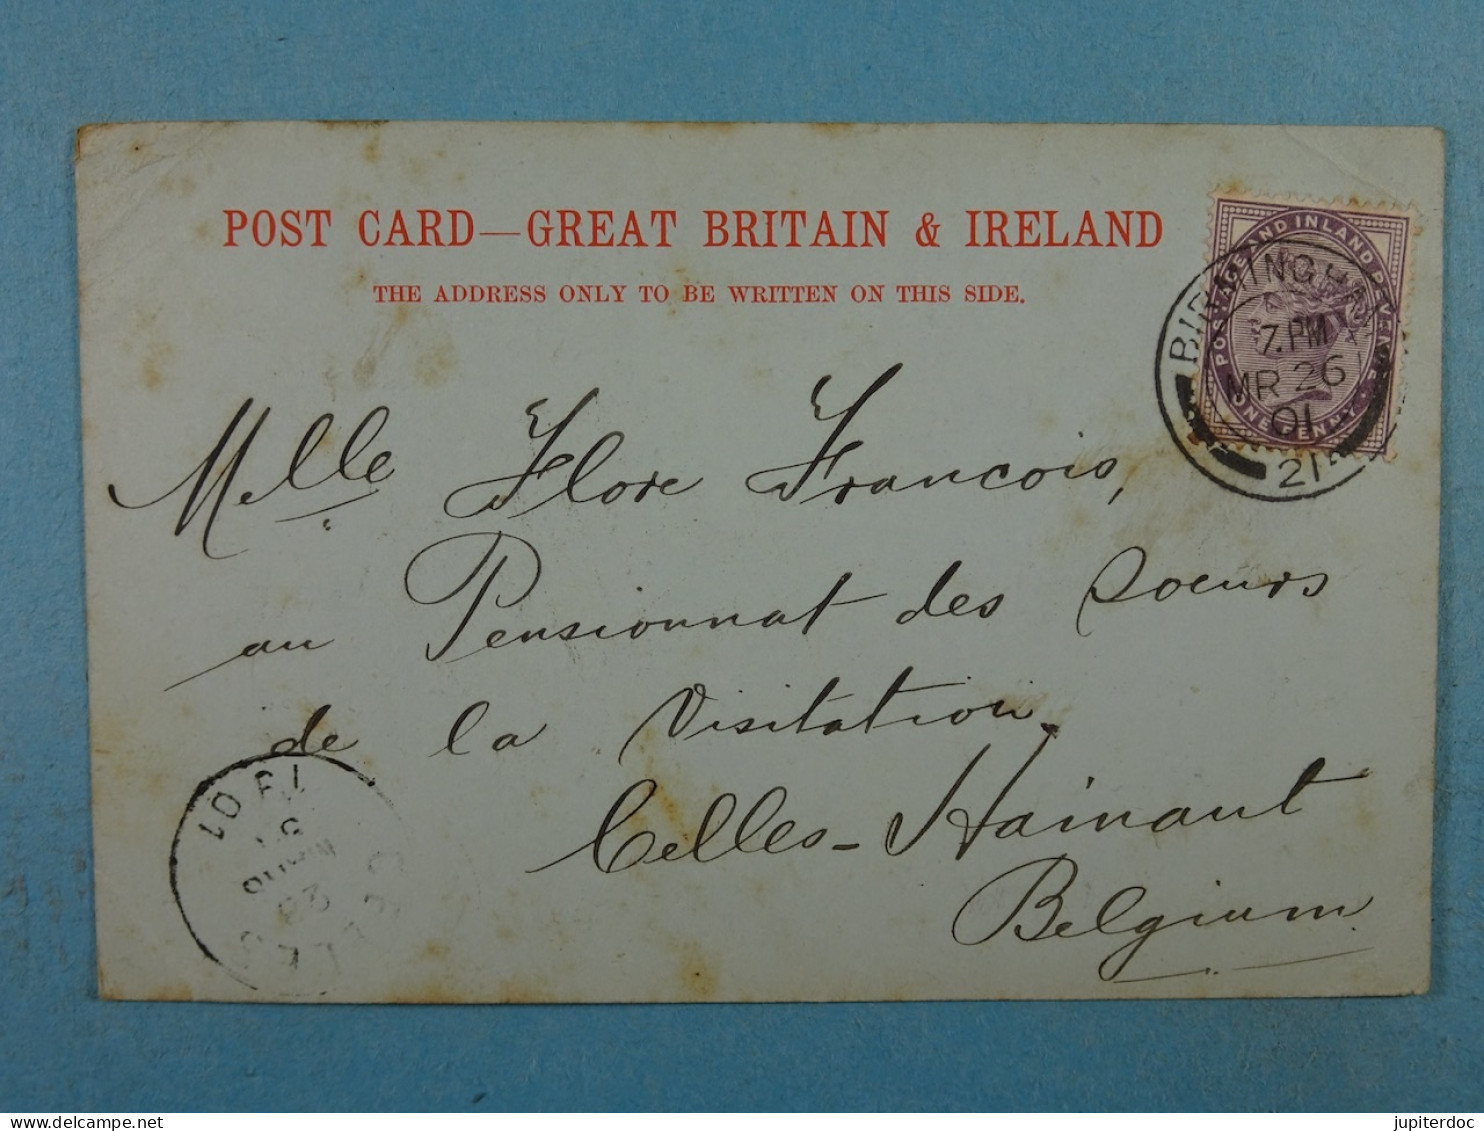 POST CARD—GREAT BRITAIN & IRELAND
THE ADDRESS ONLY TO BE WRITTEN ON THIS SIDE.
POSTAGE AND INLAND REVENUE
ONE PENNY
BIRMINGHAM
7. PM
MR 26
01
21
Melle Flore Francois,
au Pensionnat des Soeurs
de la Visitation.
Celles-Hainaut
Belgium
CELLES
01
jupiterdoc